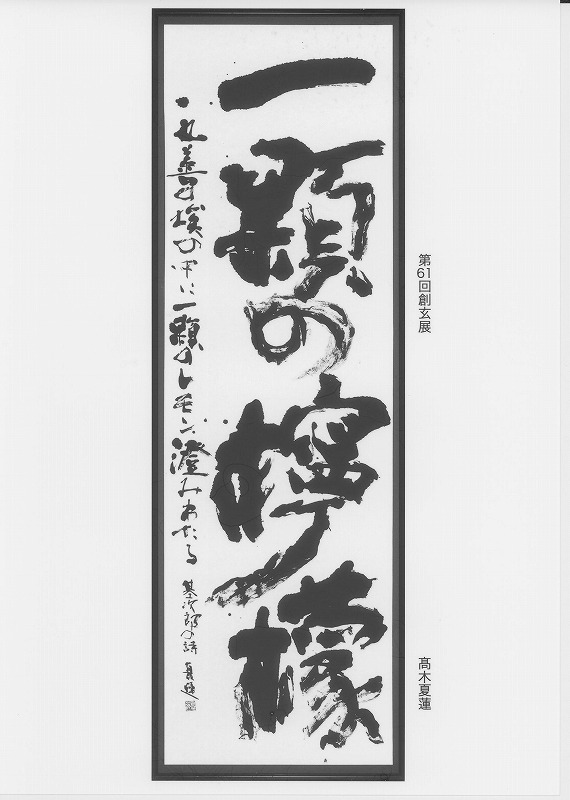 第61回創玄展
髙木夏蓮
一顆の檸檬
丸善の埃の中に一顆のレモン澄みわたる 基次郎の詩 夏蓮